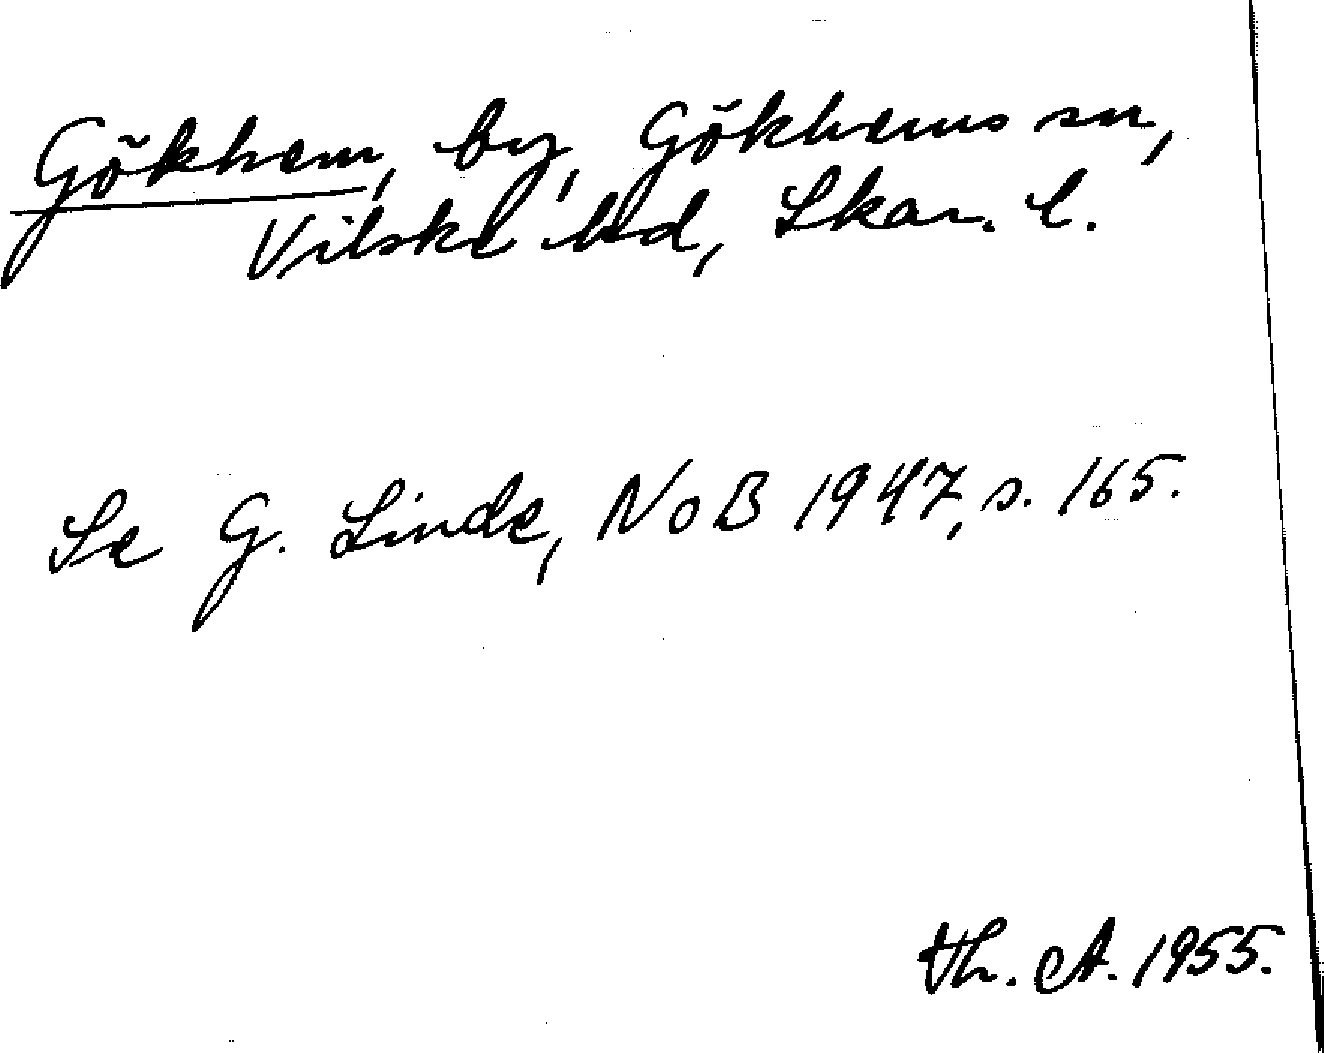 Gökhem, by, Gökhems sn,
Vilske hd, Skar. l.
Se G. Linde, NoB 1947, s. 165.
Th. A. 1955.